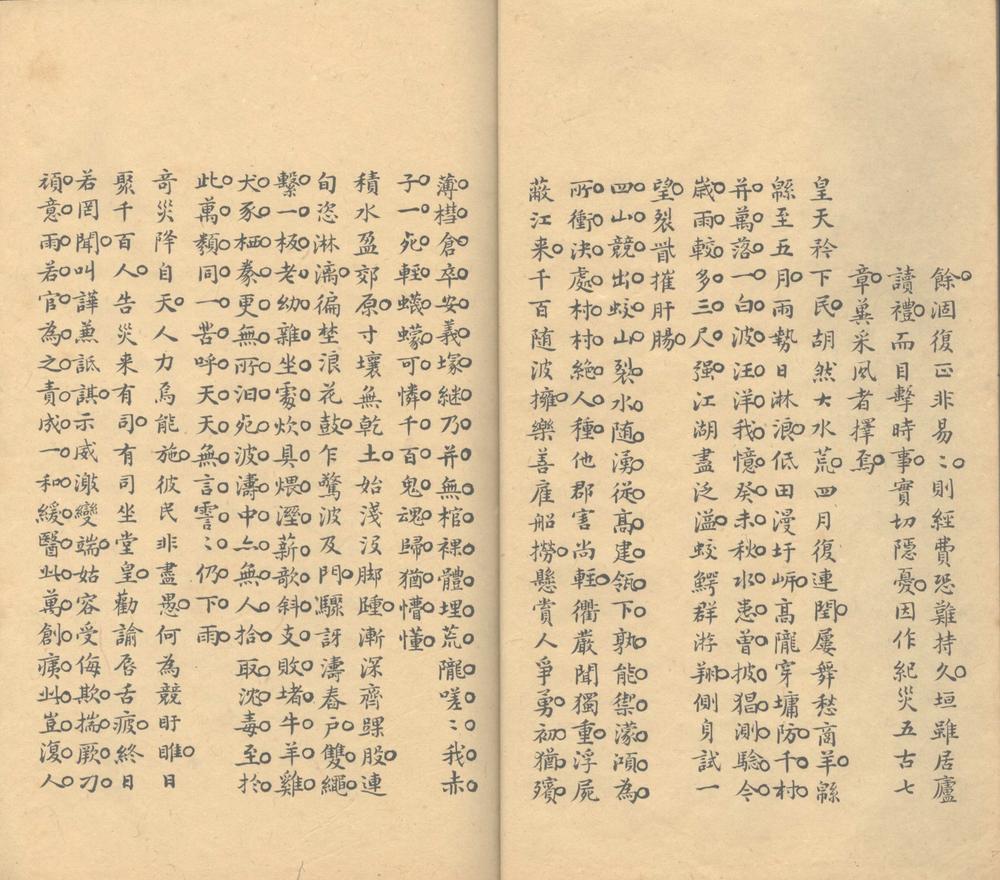 餘涸復正非易〻則經費恐難持久垣雖居廬
讀禮而目擊時事實切隱憂因作紀災五古七
章冀采風者擇焉
皇天矜下民胡然大水荒四月復連閏屢舞愁商羊緜
緜至五月雨勢日淋浪低田漫圩岸高隴穿墉防千村
并萬落一白波汪洋我憶癸未秋水患曾披猖測驗今
歲雨較多三尺强江湖盡泛溢蛟鰐群游翔側身試一
望裂眥摧肝腸
四山競出蛟山裂水随湧從高建瓴下孰能禦濛澒為
所衝決處村村絶人種他郡害尚輕衢嚴聞獨重浮屍
蔽江来千百随波擁樂善雇船撈懸賞人爭勇初猶殯
薄槥倉卒安義塚継乃并無棺裸體埋荒隴嗟〻我赤
子一死輕蠛蠓可憐千百鬼魂歸猶懵懂
積水盈郊原寸壤無乾土始淺沒脚踵漸深齊踝股連
旬恣淋漓徧埜浪花鼓乍驚波及門驟訝濤舂戶雙繩
繫一板老幼雜坐處炊具煨溼薪歌斜支敗堵牛羊雞
犬豕栖豢更無所汨死波濤中亦無人拾取沈毒至於
此萬類同一苦呼天天無言霅〻仍下雨
奇災降自天人力烏能施彼民非盡愚何為競盱睢日
聚千百人告災来有司有司坐堂皇勸諭唇舌疲終日
若罔聞叫譁兼詆諆示威激變端姑容受侮欺揣厥刁
頑意雨若官為之責成一和緩醫此萬創痍此豈復人